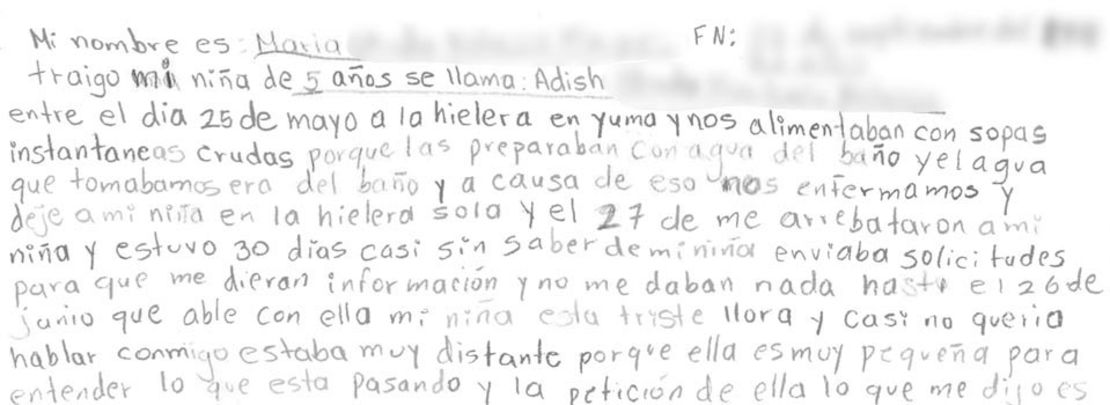 Mi nombre es: Maria FN:
traigo mi niña de 5 años se llama: Adish
entre el dia 25 de mayo a la hielera en yuma y nos alimentaban con sopas
instantaneas crudas porque las preparaban con agua del baño y el agua
que tomabamos era del baño y a causa de eso nos enfermamos y
deje a mi niña en la hielera sola y el 27 de me arrebataron a mi
niña y estuvo 30 dias casi sin saber de mi niña enviaba solicitudes
para que me dieran información y no me daban nada hasta el 26 de
junio que able con ella mi niña esta triste llora y casi no queria
hablar conmigo estaba muy distante porque ella es muy pequeña para
entender lo que esta pasando y la petición de ella lo que me dijo es